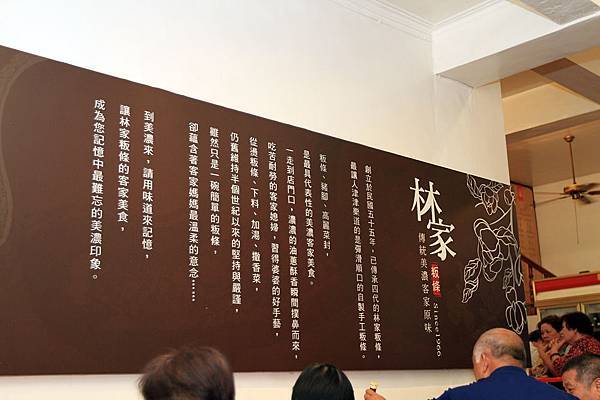 林家
粄條
since1966
傳統美濃客家原味
創立於民國五十五年，已傳承四代的林家粄條，
最讓人津津樂道的是彈滑順口的自製手工粄條。
粄條、豬腳、高麗菜封，
是最具代表性的美濃客家美食。
一走到店門口，濃濃的油蔥酥香瞬間撲鼻而來，
吃苦耐勞的客家媳婦，習得婆婆的好手藝，
從燙粄條、下料、加湯、撒香菜，
仍舊維持半個世紀以來的堅持與嚴謹，
雖然只是一碗簡單的粄條，
卻蘊含著客家媽媽最溫柔的意念……
到美濃來，請用味道來記憶，
讓林家粄條的客家美食，
成為您記憶中最難忘的美濃印象。